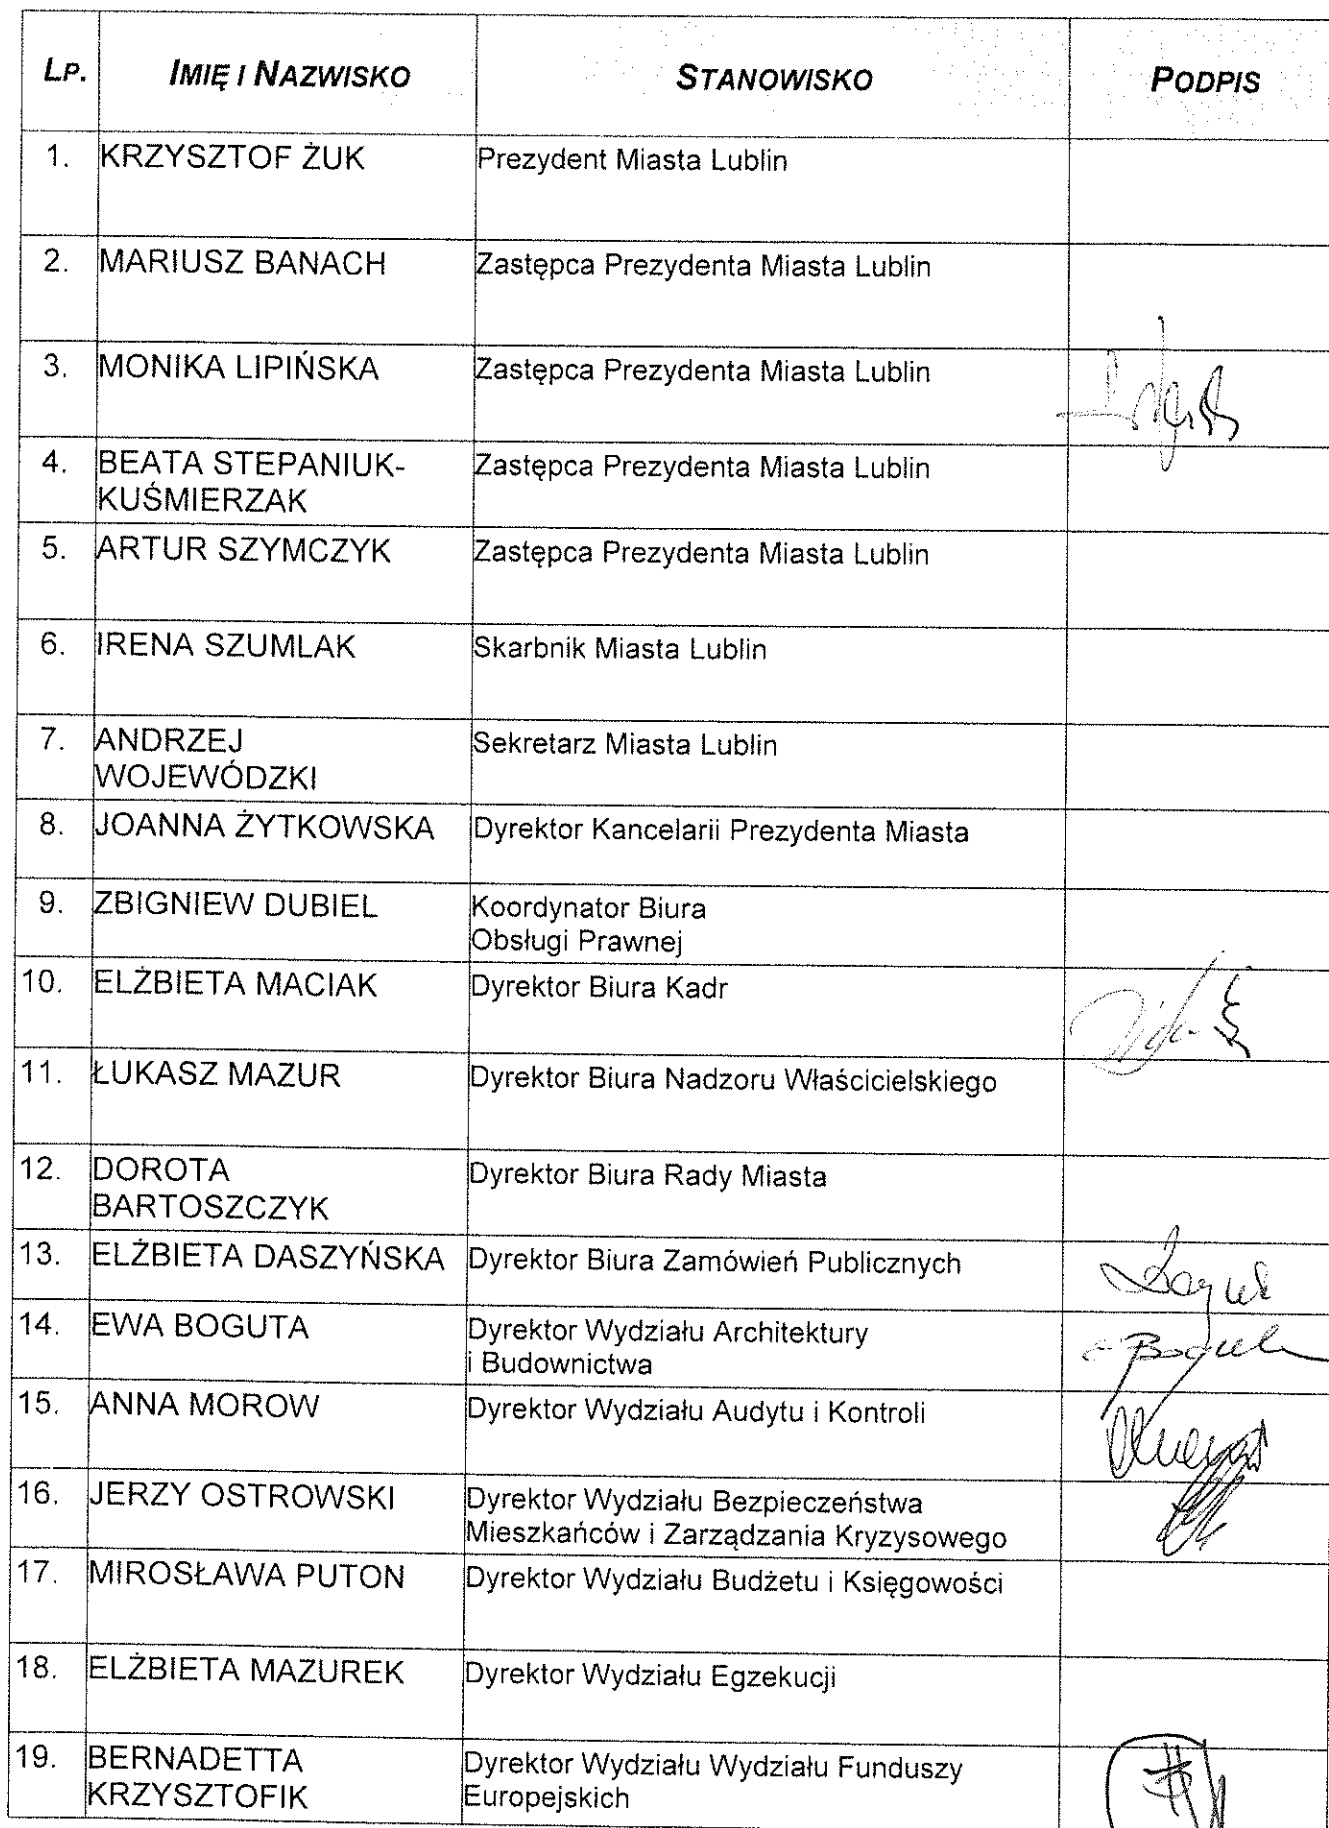 LP. IMIĘ I NAZWISKO STANOWISKO PODPIS
1. KRZYSZTOF ŻUK Prezydent Miasta Lublin
2. MARIUSZ BANACH Zastępca Prezydenta Miasta Lublin
3. MONIKA LIPIŃSKA Zastępca Prezydenta Miasta Lublin
4. BEATA STEPANIUK- Zastępca Prezydenta Miasta Lublin
KUŚMIERZAK
5. ARTUR SZYMCZYK Zastępca Prezydenta Miasta Lublin
6. IRENA SZUMLAK Skarbnik Miasta Lublin
7. ANDRZEJ Sekretarz Miasta Lublin
WOJEWÓDZKI
8. JOANNA ŻYTKOWSKA Dyrektor Kancelarii Prezydenta Miasta
9. ZBIGNIEW DUBIEL Koordynator Biura
Obsługi Prawnej
10. ELŻBIETA MACIAK Dyrektor Biura Kadr
11. ŁUKASZ MAZUR Dyrektor Biura Nadzoru Właścicielskiego
12. DOROTA Dyrektor Biura Rady Miasta
BARTOSZCZYK
13. ELŻBIETA DASZYŃSKA Dyrektor Biura Zamówień Publicznych
14. EWA BOGUTA Dyrektor Wydziału Architektury
i Budownictwa
15. ANNA MOROW Dyrektor Wydziału Audytu i Kontroli
16. JERZY OSTROWSKI Dyrektor Wydziału Bezpieczeństwa
Mieszkańców i Zarządzania Kryzysowego
17. MIROSŁAWA PUTON Dyrektor Wydziału Budżetu i Księgowości
18. ELŻBIETA MAZUREK Dyrektor Wydziału Egzekucji
19. BERNADETTA Dyrektor Wydziału Wydziału Funduszy
KRZYSZTOFIK Europejskich